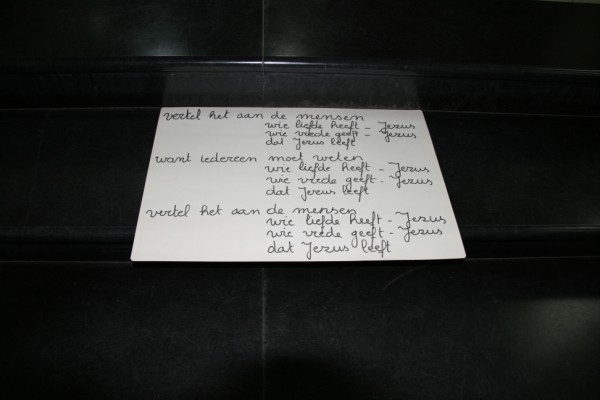 vertel het aan de mensen
wie liefde heeft - Jezus
wie vrede geeft - Jezus
dat Jezus leeft
want iedereen moet weten
wie liefde heeft - Jezus
wie vrede geeft - Jezus
dat Jezus leeft
vertel het aan de mensen
wie liefde heeft - Jezus
wie vrede geeft - Jezus
dat Jezus leeft